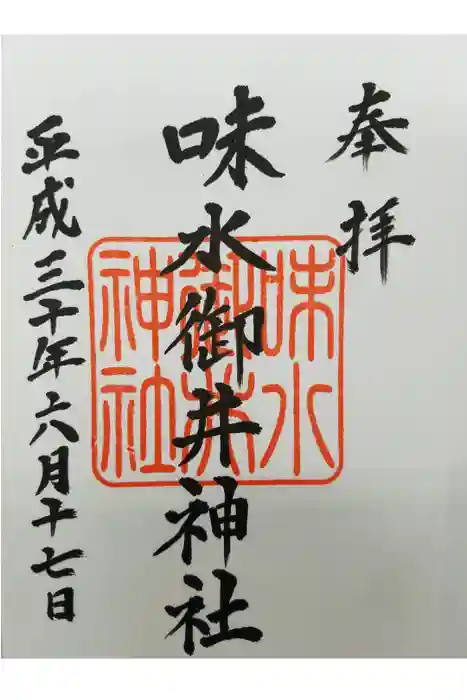 奉拝
味水御井神社
平成三十年六月十七日
味水
御井
神社